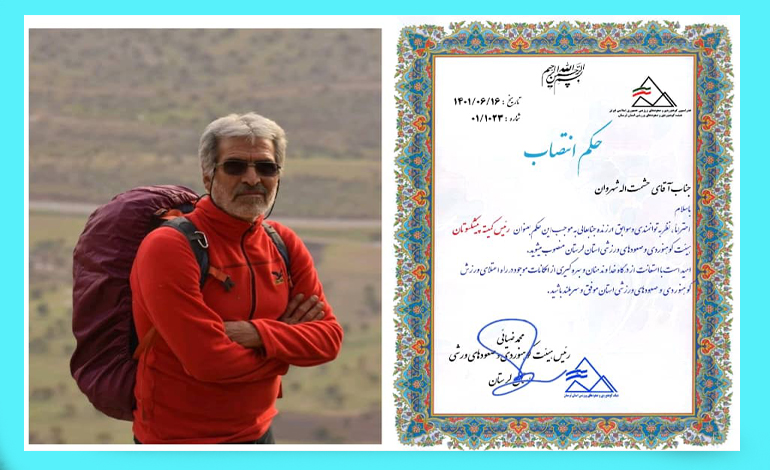 بسم الله الرحمن الرحیم
تاریخ : ۱۴۰۱/۰۶/۱۶
شماره : ۰۱/۱۰۲۳
حکم انتصاب
جناب آقای حشمت اله شهروان
باسلام
احتراماً، نظر به توانمندی و سوابق ارزنده جنابعالی به موجب این حکم بعنوان رئیس کمیته پیشکسوتان
هیئت کوهنوردی و صعودهای ورزشی استان لرستان منصوب میشوید.
امید است با استعانت از درگاه خداوند منان و بهره گیری از امکانات موجود در راه اعتلای ورزش
کوهنوردی و صعودهای ورزشی استان موفق و سربلند باشید.
محمد ضیائی
رئیس هیئت کوهنوردی و صعودهای ورزشی
استان لرستان